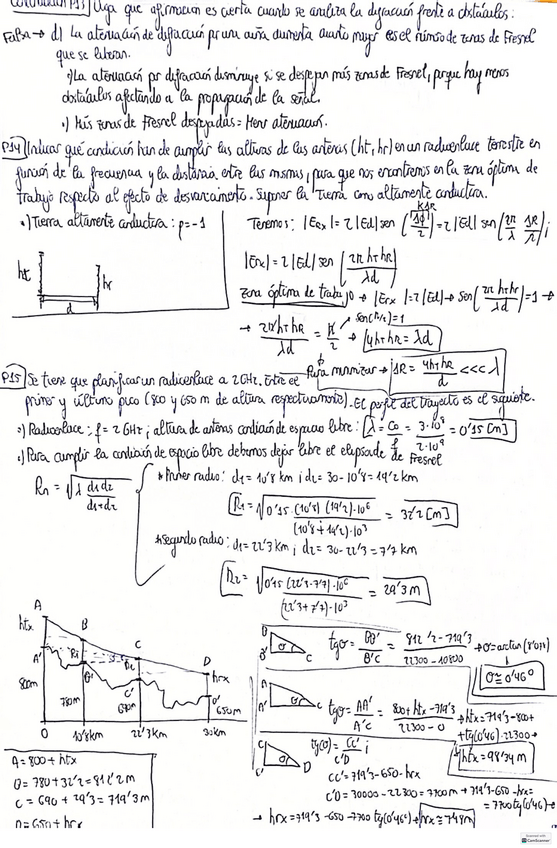 Continuación P13) Diga que afirmación es cierta cuando se analiza la difracción frente a obstáculos:
Falsa → d) La atenuación de difracción por una aumenta cuanto mayor es el número de zonas de Fresnel
que se liberan.
·) La atenuación por difracción disminuye si se despejan más zonas de Fresnel, porque hay menos
obstáculos afectando a la propagación de la señal.
·) Más zonas de Fresnel despejadas = Menor atenuación.
P14) Indicar qué condición han de cumplir las alturas de las antenas (ht, hr) en un radioenlace terrestre en
función de la frecuencia y la distancia entre las mismas, para que nos encontremos en la zona óptima de
trabajo respecto al efecto de desvanecimiento. Suponer la Tierra como altamente conductora.
·) Tierra altamente conductora: ρ=-1
Tenemos: |Erx| = 2|Ed| sen (Δφ/2) = 2|Ed| sen (2π/λ ΔR/2) ;
ht
hr
d
|Erx| = 2|Ed| sen (2π ht hR / λd)
Zona óptima de trabajo → |Erx| = 2|Ed| → sen (2π ht hR / λd) = 1 →
sen(π/2)=1
→ 2π ht hR / λd = π/2 → 4ht hR = λd
Para minimizar → ΔR = 4ht hR / d <<< λ
P15) Se tiene que planificar un radioenlace a 2 GHz. Entre el
primer y último pico (800 y 650 m de altura respectivamente). El perfil del trayecto es el siguiente.
·) Radioenlace: f = 2 GHz ; altura de antenas condición de espacio libre: λ = Co/f = 3·10⁸ / 2·10⁹ = 0'15 [m]
·) Para cumplir la condición de espacio libre debemos dejar libre el elipsoide de Fresnel
Rn = √(λ d1d2 / d1+d2)
* Primer radio: d1 = 10'8 km ; d2 = 30-10'8 = 19'2 km
R1 = √(0'15·(10'8)(19'2)·10⁶ / (10'8+19'2)·10³) = 32'2 [m]
* Segundo radio: d1 = 22'3 km ; d2 = 30-22'3 = 7'7 km
R2 = √(0'15(22'3·7'7)·10⁶ / (22'3+7'7)·10³) = 29'3 m
A
htx
B
A'
R1
R2
C
D
hrx
B'
C'
D'
800m
780m
690m
650m
0
10'8km
22'3km
30km
A = 800 + htx
B = 780 + 32'2 = 812'2 m
C = 690 + 29'3 = 719'3 m
D = 650 + hrx
B
B'
σ
C
tgσ = BB'/B'C = 812'2 - 719'3 / 22300 - 10800 → σ = arctan (8'07)
σ ≅ 0'46º
A
A'
σ
C
tgσ = AA'/A'C = 800 + htx - 719'3 / 22300 - 0 → htx = 719'3 - 800 +
+ tg(0'46)·22300 →
htx = 98'34 m
C
C'
σ
D
tg(σ) = CC'/C'D ;
CC' = 719'3 - 650 - hrx
C'D = 30000 - 22300 = 7700 m → 719'3 - 650 - hrx =
= 7700 tg(0'46) →
→ hrx = 719'3 - 650 - 7700 tg(0'46º) → hrx ≅ 7'48 m
CS CamScanner